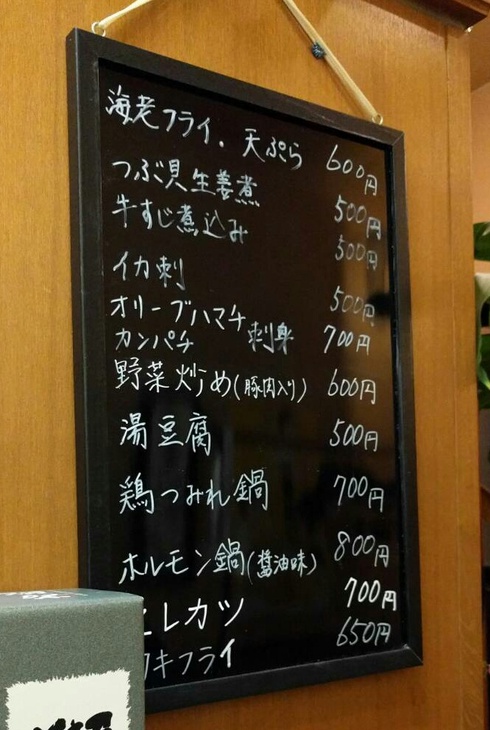 海老フライ・天ぷら 600円
つぶ貝生姜煮 500円
牛すじ煮込み 500円
イカ刺 500円
オリーブハマチ
カンパチ 刺身 700円
野菜炒め(豚肉入り) 600円
湯豆腐 500円
鶏つみれ鍋 700円
ホルモン鍋(醤油味) 800円
ヒレカツ 700円
キフライ 650円